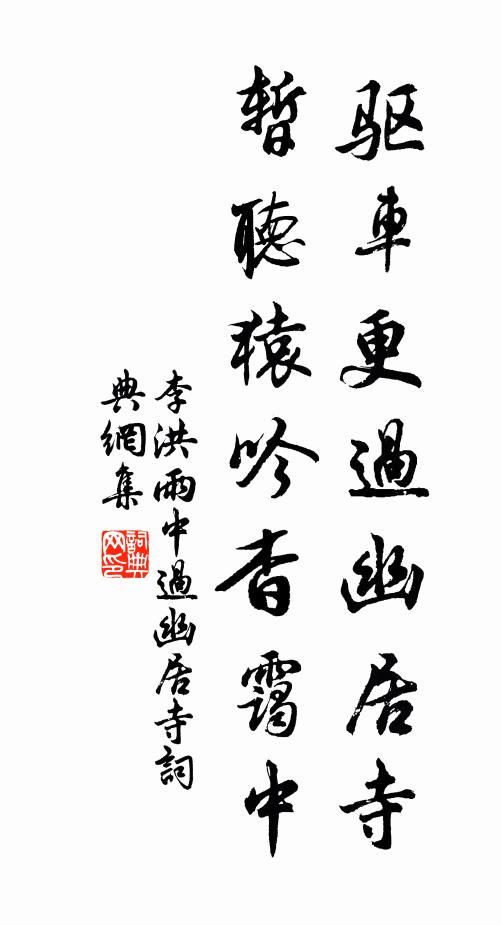 驱車更過幽居寺
暫聽猿吟杳靄中
李洪雨中過幽居寺詞
典網集
詞典
网印